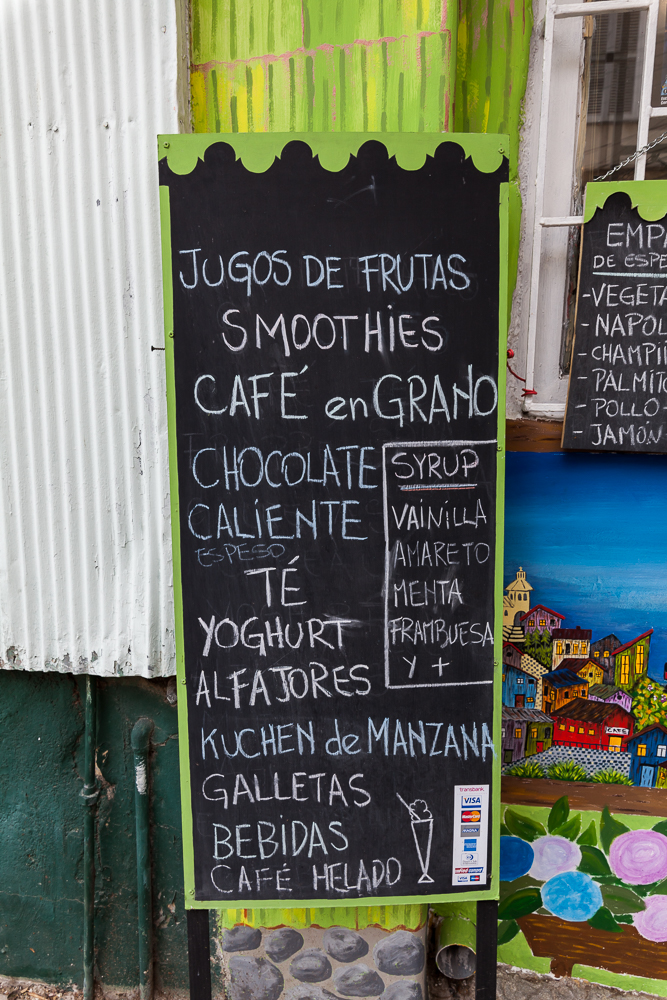 JUGOS DE FRUTAS
SMOOTHIES
CAFÉ en GRANO
CHOCOLATE
CALIENTE
ESPESO
TÉ
YOGHURT
ALFAJORES
SYRUP
VAINILLA
AMARETO
MENTA
FRAMBUESA
Y +
KUCHEN de MANZANA
GALLETAS
BEBIDAS
CAFÉ HELADO
transbank.
VISA
MasterCard
MAGNA
DE
-VEGETA
-NAPOL
-CHAMPIÑ
-PALMITO
-POLLO
-JAMÓN
CAFE